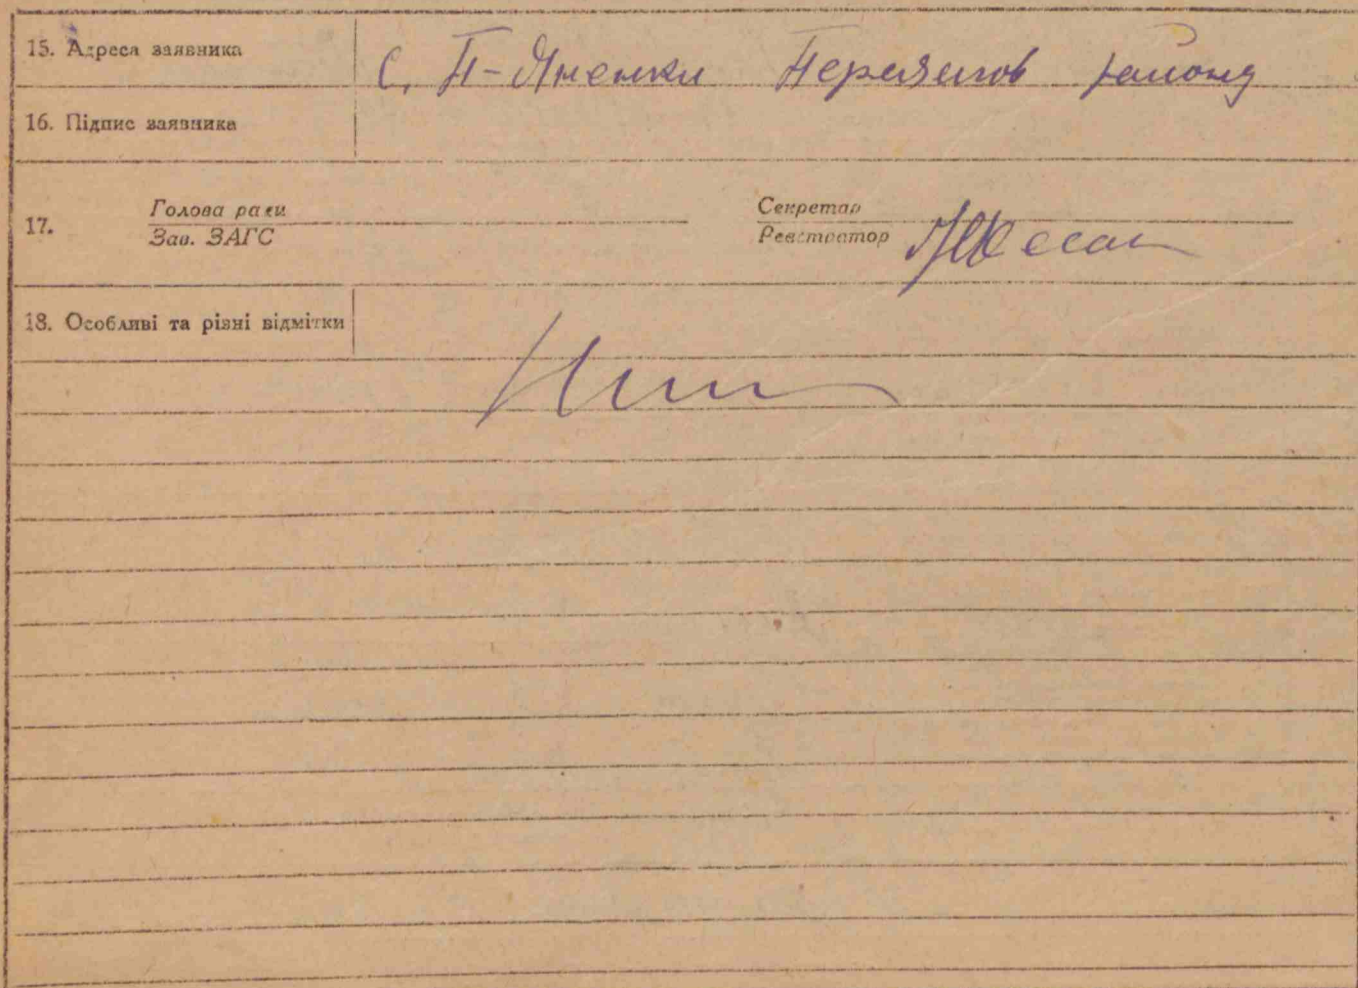 15. Адреса заявника С. П-Яненки району
16. Підпис заявника
17. Голова ради Секретар
Зав. ЗАГС Реєстратор
18. Особливі та різні відмітки